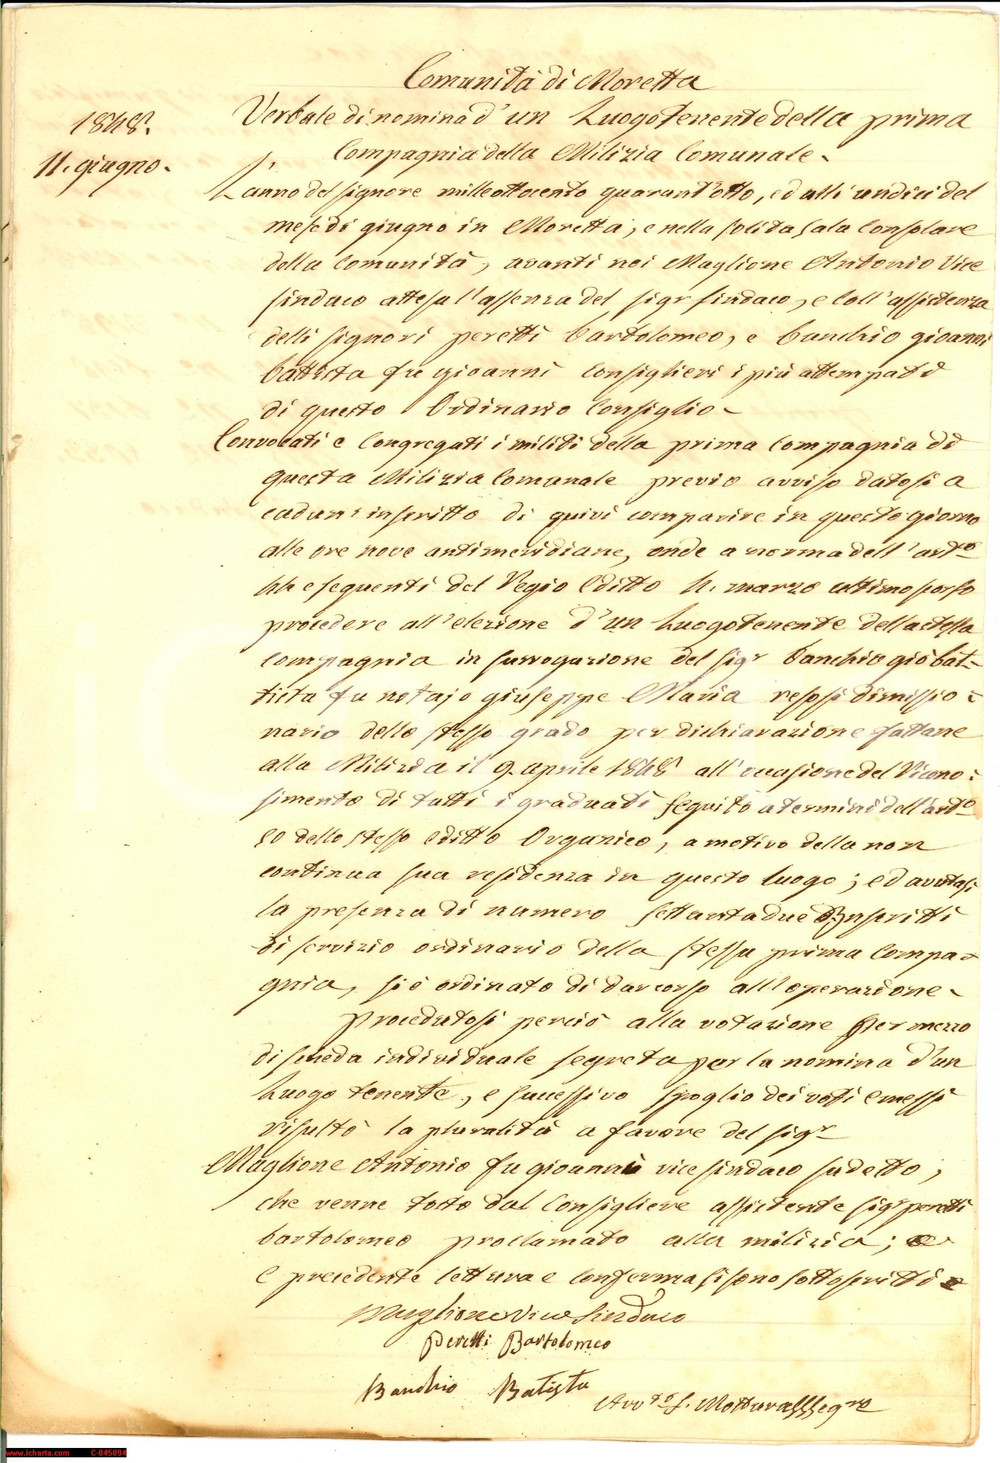 Comunità di Moretta
1848.
11. giugno.
Verbale di nomina d'un Luogotenente della prima
Compagnia della Milizia Comunale.
L'anno del signore milleottocento quarant'otto, ed alli undici del
mese di giugno in Moretta, e nella solita sala consolare
della Comunità, avanti noi Maglione Antonio Vice
sindaco attesa l'assenza del sigr sindaco, e coll'assistenza
delli signori peretti bartolomeo, e banchio gioanni
battista fu gioanni Consiglieri i più attempati
di questo Ordinario Consiglio.
Convocati e Congregati i militi della prima Compagnia di
questa Milizia Comunale previo avviso datosi a
cadun' inscritto di quivi comparire in questo giorno
alle ore nove antimeridiane, onde a norma dell'arto
44 e seguenti del Regio Editto 4. marzo ultimo scorso
procedere all'elezione d'un Luogotenente della stessa
Compagnia in surrogazione del sigr banchio gio bat-
tista fu notajo giuseppe Maria resosi dimissio-
nario dello stesso grado per dichiarazione fattane
alla Milizia il 9. aprile 1848 all'occasione del Ricono-
simento di tutti i graduati seguito a termini dell'arto
50 dello stesso Editto Organico, a motivo della non
continua sua residenza in questo luogo; ed avutasi
la presenza di numero settantadue Inscritti
di servizio ordinario della stessa prima Compa-
gnia, si è ordinato di dar corso all'operazione.
Procedutosi perciò alla votazione per mezzo
di scheda individuale segreta per la nomina d'un
Luogotenente, e successivo spoglio dei voti emessi
risultò la pluralità a favore del sigr
Maglione Antonio fu gioanni vice sindaco sudetto,
che venne tosto dal Consigliere assistente sigr peretti
bartolomeo proclamato alla milizia;
E precedente lettura e conferma si sono sottoscritti
Maglione Vice Sindaco
Peretti Bartolomeo
Banchio Batista
www.icharta.com C-045894